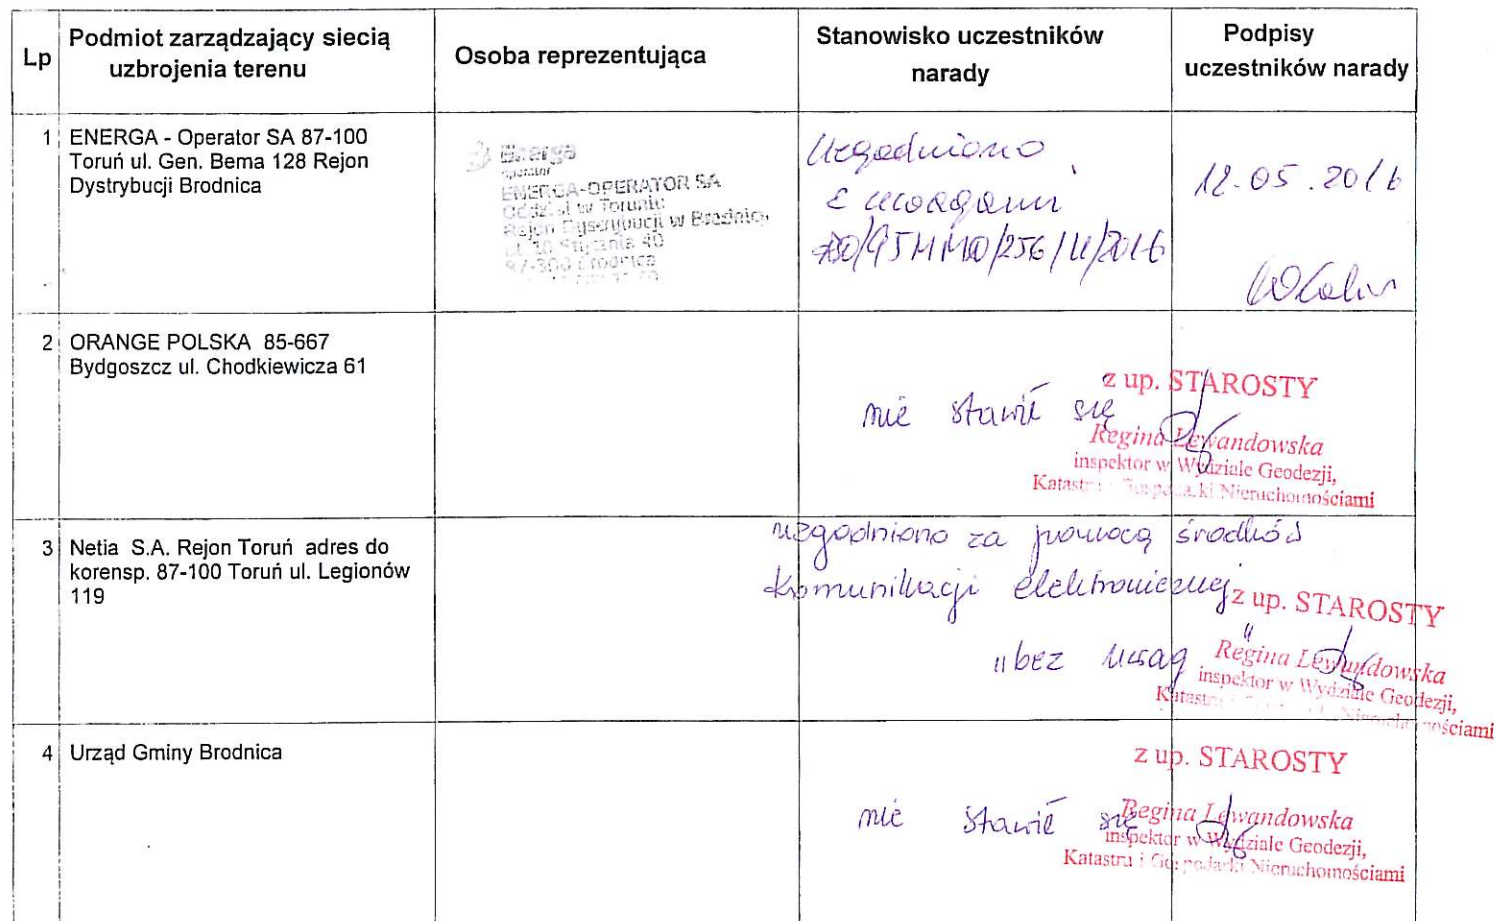 Lp
Podmiot zarządzający siecią
uzbrojenia terenu
Osoba reprezentująca
Stanowisko uczestników
narady
Podpisy
uczestników narady
1
ENERGA - Operator SA 87-100
Toruń ul. Gen. Bema 128 Rejon
Dystrybucji Brodnica
Energa
operator
ENERGA-OPERATOR SA
Oddział w Toruniu
Rejon Dystrybucji w Brodnicy
ul. 18 Stycznia 40
87-300 Brodnica
Uzgodniono
z uwagami
/2016
12.05.2016
2
ORANGE POLSKA 85-667
Bydgoszcz ul. Chodkiewicza 61
nie stawił się
z up. STAROSTY
Regina Lewandowska
inspektor w Wydziale Geodezji,
Katastru i Gospodarki Nieruchomościami
3
Netia S.A. Rejon Toruń adres do
korensp. 87-100 Toruń ul. Legionów
119
uzgodniono za pomocą środków
komunikacji elektronicznej
„bez uwag"
z up. STAROSTY
Regina Lewandowska
inspektor w Wydziale Geodezji,
Katastru i Gospodarki Nieruchomościami
4
Urząd Gminy Brodnica
nie stawił się
z up. STAROSTY
Regina Lewandowska
inspektor w Wydziale Geodezji,
Katastru i Gospodarki Nieruchomościami